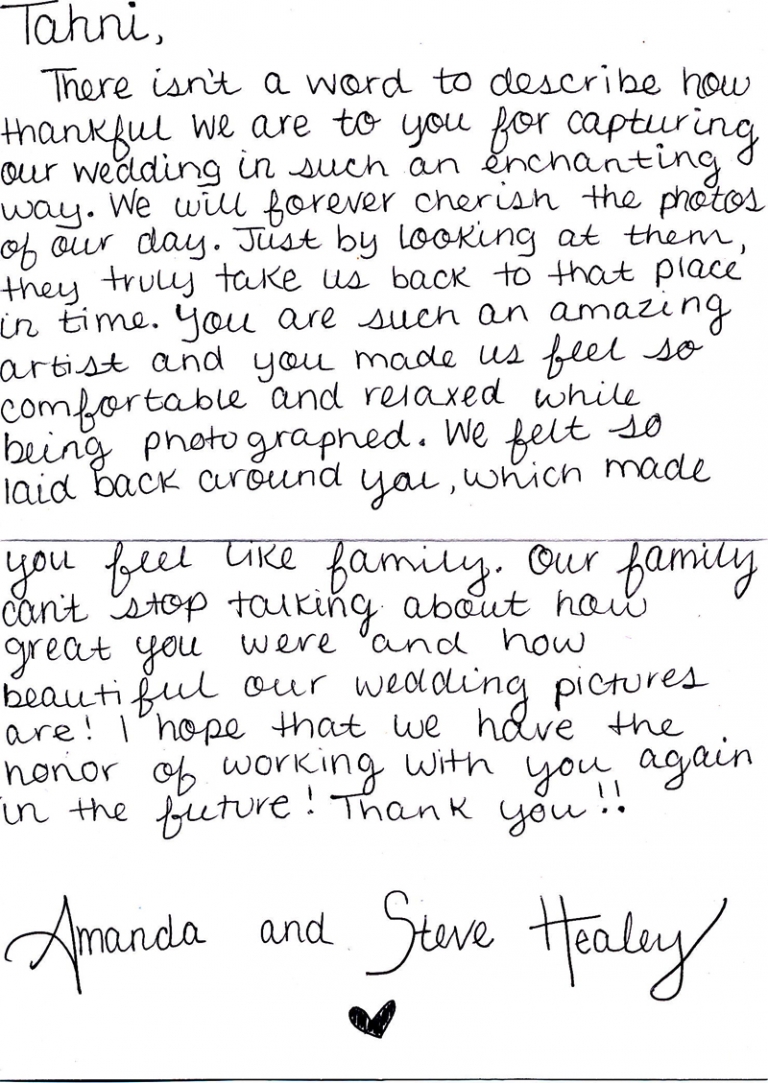 Tahni,
There isn't a word to describe how
thankful we are to you for capturing
our wedding in such an enchanting
way. We will forever cherish the photos
of our day. Just by looking at them,
they truly take us back to that place
in time. You are such an amazing
artist and you made us feel so
comfortable and relaxed while
being photographed. We felt so
laid back around you, which made
you feel like family. Our family
can't stop talking about how
great you were and how
beautiful our wedding pictures
are! I hope that we have the
honor of working with you again
in the future! Thank you!!
Amanda and Steve Healey